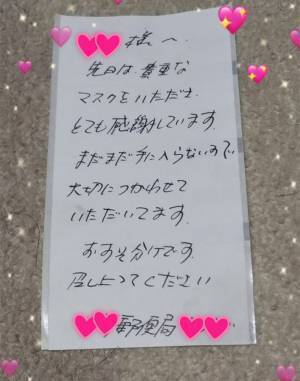 様へ.
先日は、貴重な
マスクをいただき、
とても感謝しています。
まだまだ手に入らないので、
大切につかわせて
いただいてます。
おすそ分けです。
召し上ってください
郵便局